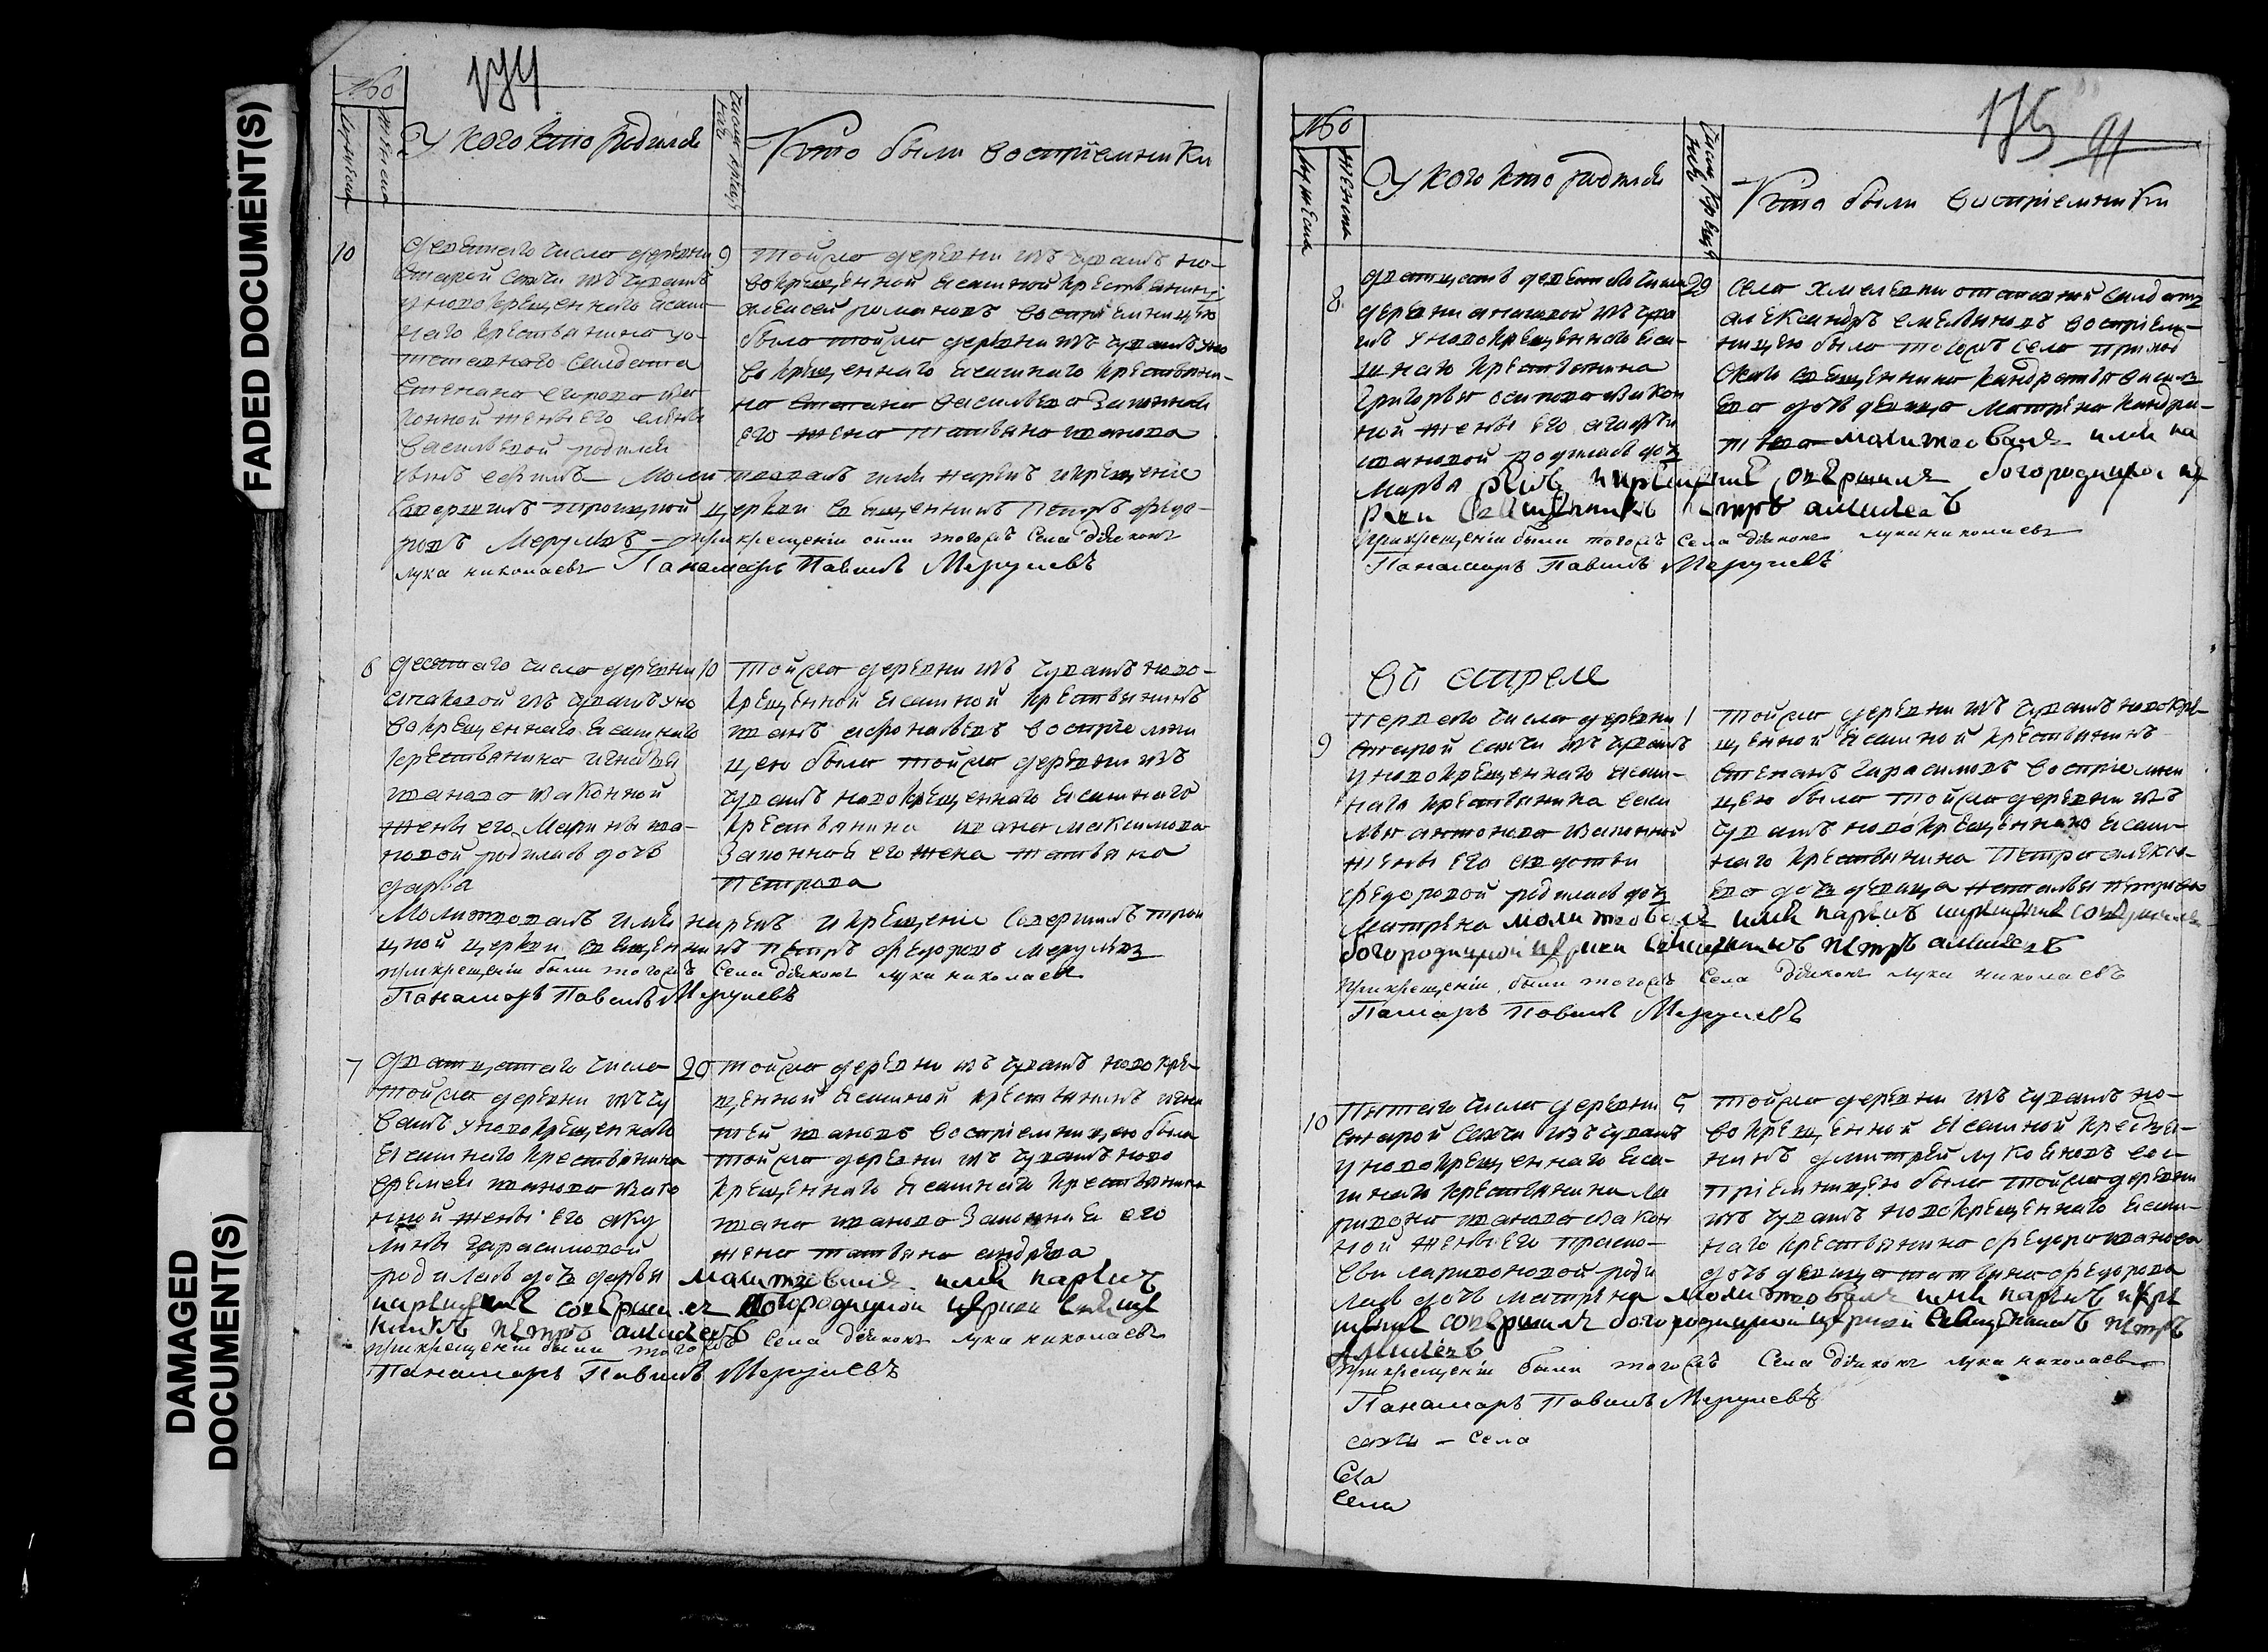 FADED DOCUMENT(S)
DAMAGED
DOCUMENT(S)
174
№о
мужеска
женска
У кого кто родился
Число крещенія
Кто были воспріемники
10
9
девятаго числа деревни
Старой Сахчи изъ чувашъ
у новокрещеннаго ясаш-
наго крестьянина
Степана
жены его
Васильевой родился
сынъ
той же деревни изъ чувашъ но-
вокрещенной ясашной крестьянинъ
алексей романовъ воспріемницею
была той же деревни изъ чувашъ у но
вокрещеннаго ясашнаго крестьяни-
на степана васильева законная
его жена татьяна иванова
молитвовалъ имя нарекъ и крещеніе
совершилъ троицкой церкви священникъ Петръ федо-
ровъ Мерулевъ при крещеніи были тогожъ Села діяконъ
лука николаевъ Панамарь Павилъ Мерулевъ
6
10
десятаго числа деревни
изъ чувашъ у но
вокрещеннаго ясашнаго
крестьянина игнатья
иванова законной
жены его Марины ива-
новой родилась дочь
дарья
той же деревни изъ чувашъ ново-
крещенной ясашной крестьянинъ
иванъ афонасьевъ воспріемни
цею была той же деревни изъ
чувашъ новокрещеннаго ясашнаго
крестьянина ивана максимова
Законная его жена татьяна
петрова
Молитвовалъ имя нарекъ и крещеніе совершилъ трои
цкой церкви священникъ петръ федоровъ мерулевъ
при крещеніи были тогожъ Села діяконъ лука николаевъ
Панамарь Павилъ Мерулевъ
7
20
дватцатаго числа
той же деревни изъ чу
вашъ у новокрещеннаго
ясашнаго крестьянина
еремея иванова зако
нной жены его аку
лины герасимовой
родилась дочь дарья
той же деревни изъ чувашъ новокре-
щенной ясашной крестьянинъ игна
тей ивановъ воспріемницею была
той же деревни изъ чувашъ ново
крещеннаго ясашнаго крестьянина
ивана иванова Законная его
жена татьяна андреева
молитвовалъ имя нарекъ
и крещеніе совершилъ богородицкой церкви священ
никъ петръ алексеевъ
при крещеніи были тогожъ Села діяконъ лука николаевъ
Панамарь Павилъ Мерулевъ
175
91
№о
мужеска
женска
У кого кто родился
Число крещенія
Кто были воспріемники
8
29
дватцать девятаго числа
деревни изъ чува
шъ у новокрещеннаго яса-
шнаго крестьянина
Григорья осипова закон
ной жены его агафьи
ивановой родилась дочь
Марья
села хмелевки отставной салдатъ
александръ емельяновъ воспріем-
ницею была тогожъ села приход
скаго священника кандратья
дочь девица матрена кандра-
тьева молитвовалъ имя на
рекъ и крещеніе совершилъ богородицкой це
ркви священникъ петръ алексеевъ
при крещеніи были тогожъ Села діяконъ лука николаевъ
Панамарь Павилъ Мерулевъ
Въ апреле
9
1
перваго числа деревни
старой сахчи изъ чувашъ
у новокрещеннаго ясаш-
наго крестьянина
антонова законной
жены его авдотьи
федоровой родилась дочь
Матрена
той же деревни изъ чувашъ новокре-
щенной ясашной крестьянинъ
степанъ гарасимовъ воспріемни
цею была той же деревни изъ
чувашъ новокрещеннаго ясаш-
наго крестьянина петра алексе-
ева дочь девица наталья петрова
молитвовалъ имя нарекъ и крещеніе совершилъ
богородицкой церкви священникъ петръ алексеевъ
при крещеніи были тогожъ Села діяконъ лука николаевъ
Памарь Павилъ Мерулевъ
10
5
Пятаго числа деревни
старой сахчи изъ чувашъ
у новокрещеннаго яса-
шнаго крестьянина ла
риона иванова закон
ной жены его праско-
вьи ларионовой роди
лась дочь матрена
той же деревни изъ чувашъ но-
вокрещенной ясашной крестья-
нинъ дмитрей лукояновъ вос-
пріемницею была той же деревни
изъ чувашъ новокрещеннаго ясаш-
наго крестьянина федора иванова
дочь девица татьяна федорова
молитвовалъ имя нарекъ и кре
щеніе совершилъ богородицкой церкви священникъ петръ
алексеевъ
при крещеніи были тогожъ Села діяконъ лука николаевъ
Панамарь Павилъ Мерулевъ
сахчи - села
Села
села